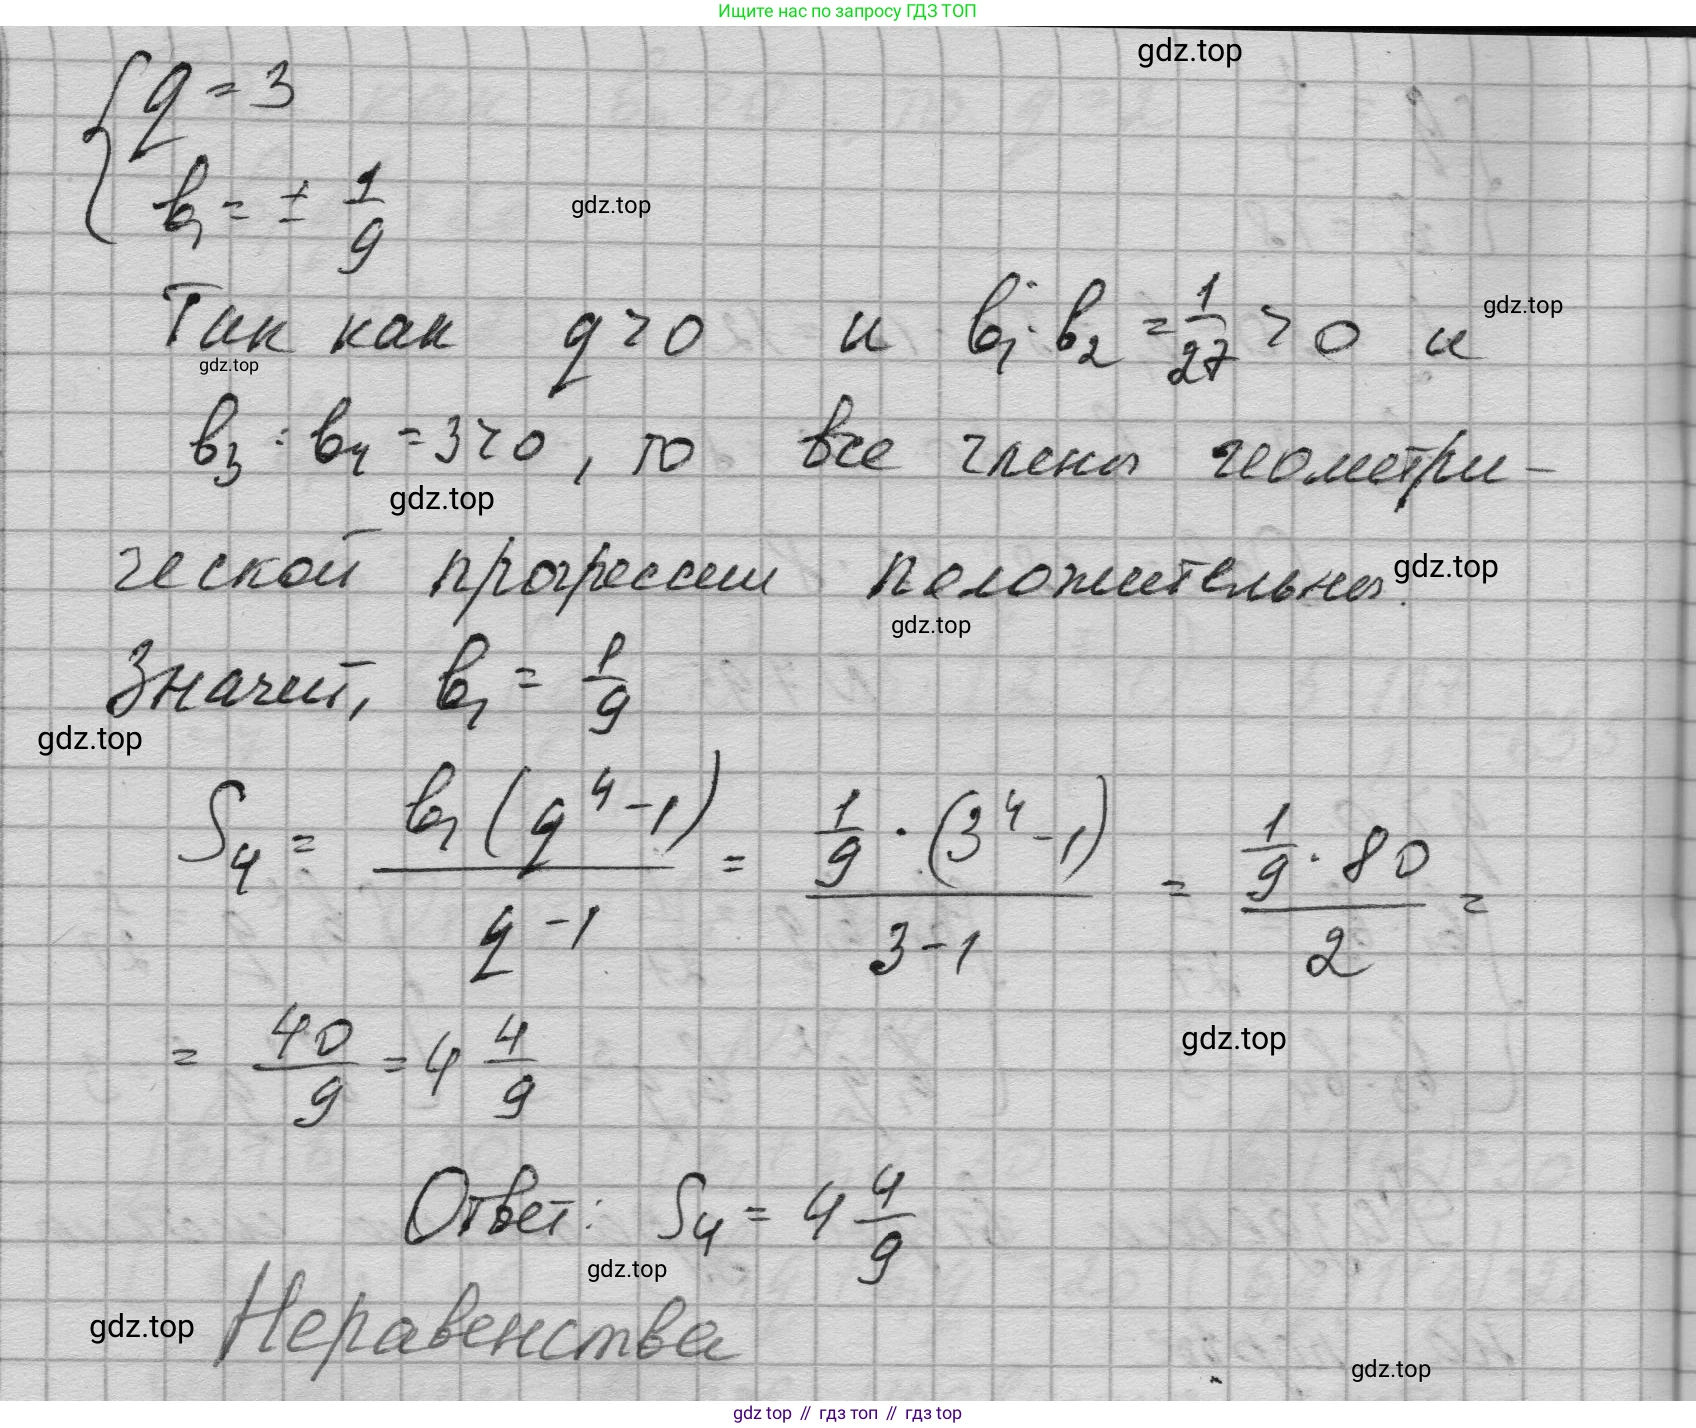 Ищите нас по запросу ГДЗ ТОП
gdz.top
q = 3
b₁ = ± 1/9
gdz.top
Так как q > 0 и b₁ · b₂ = 1/27 > 0 и
gdz.top
gdz.top
b₃ · b₄ = 3 > 0, то все члены геометри-
gdz.top
ческой прогрессии положительны.
gdz.top
gdz.top
Значит, b₁ = 1/9
gdz.top
S₄ = b₁(q⁴ - 1) / (q - 1) = 1/9 · (3⁴ - 1) / (3 - 1) = 1/9 · 80 / 2 =
= 40/9 = 4 4/9
gdz.top
Ответ: S₄ = 4 4/9
gdz.top
Неравенства
gdz.top
gdz.top
gdz top // гдз топ // гдз top